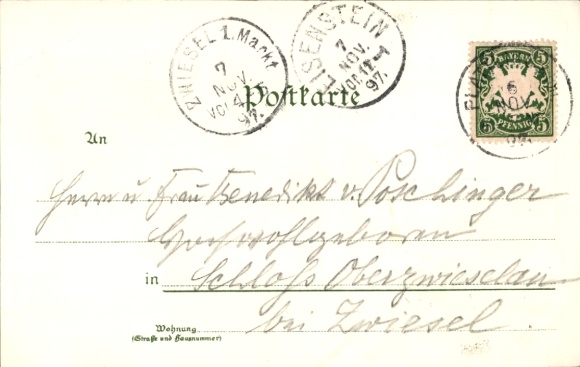 ZWIESEL 1. Markt
7
NOV.
97.
EISENSTEIN
7
NOV.
97.
5 BAYERN 5
5 PFENNIG 5
PLA
6
NOV
Postkarte
An
Herrn u. Frau Benedikt v. Poschinger
Hochwohlgeboren
in Schloß Oberzwieselau
bei Zwiesel.
Wohnung
(Straße und Hausnummer)